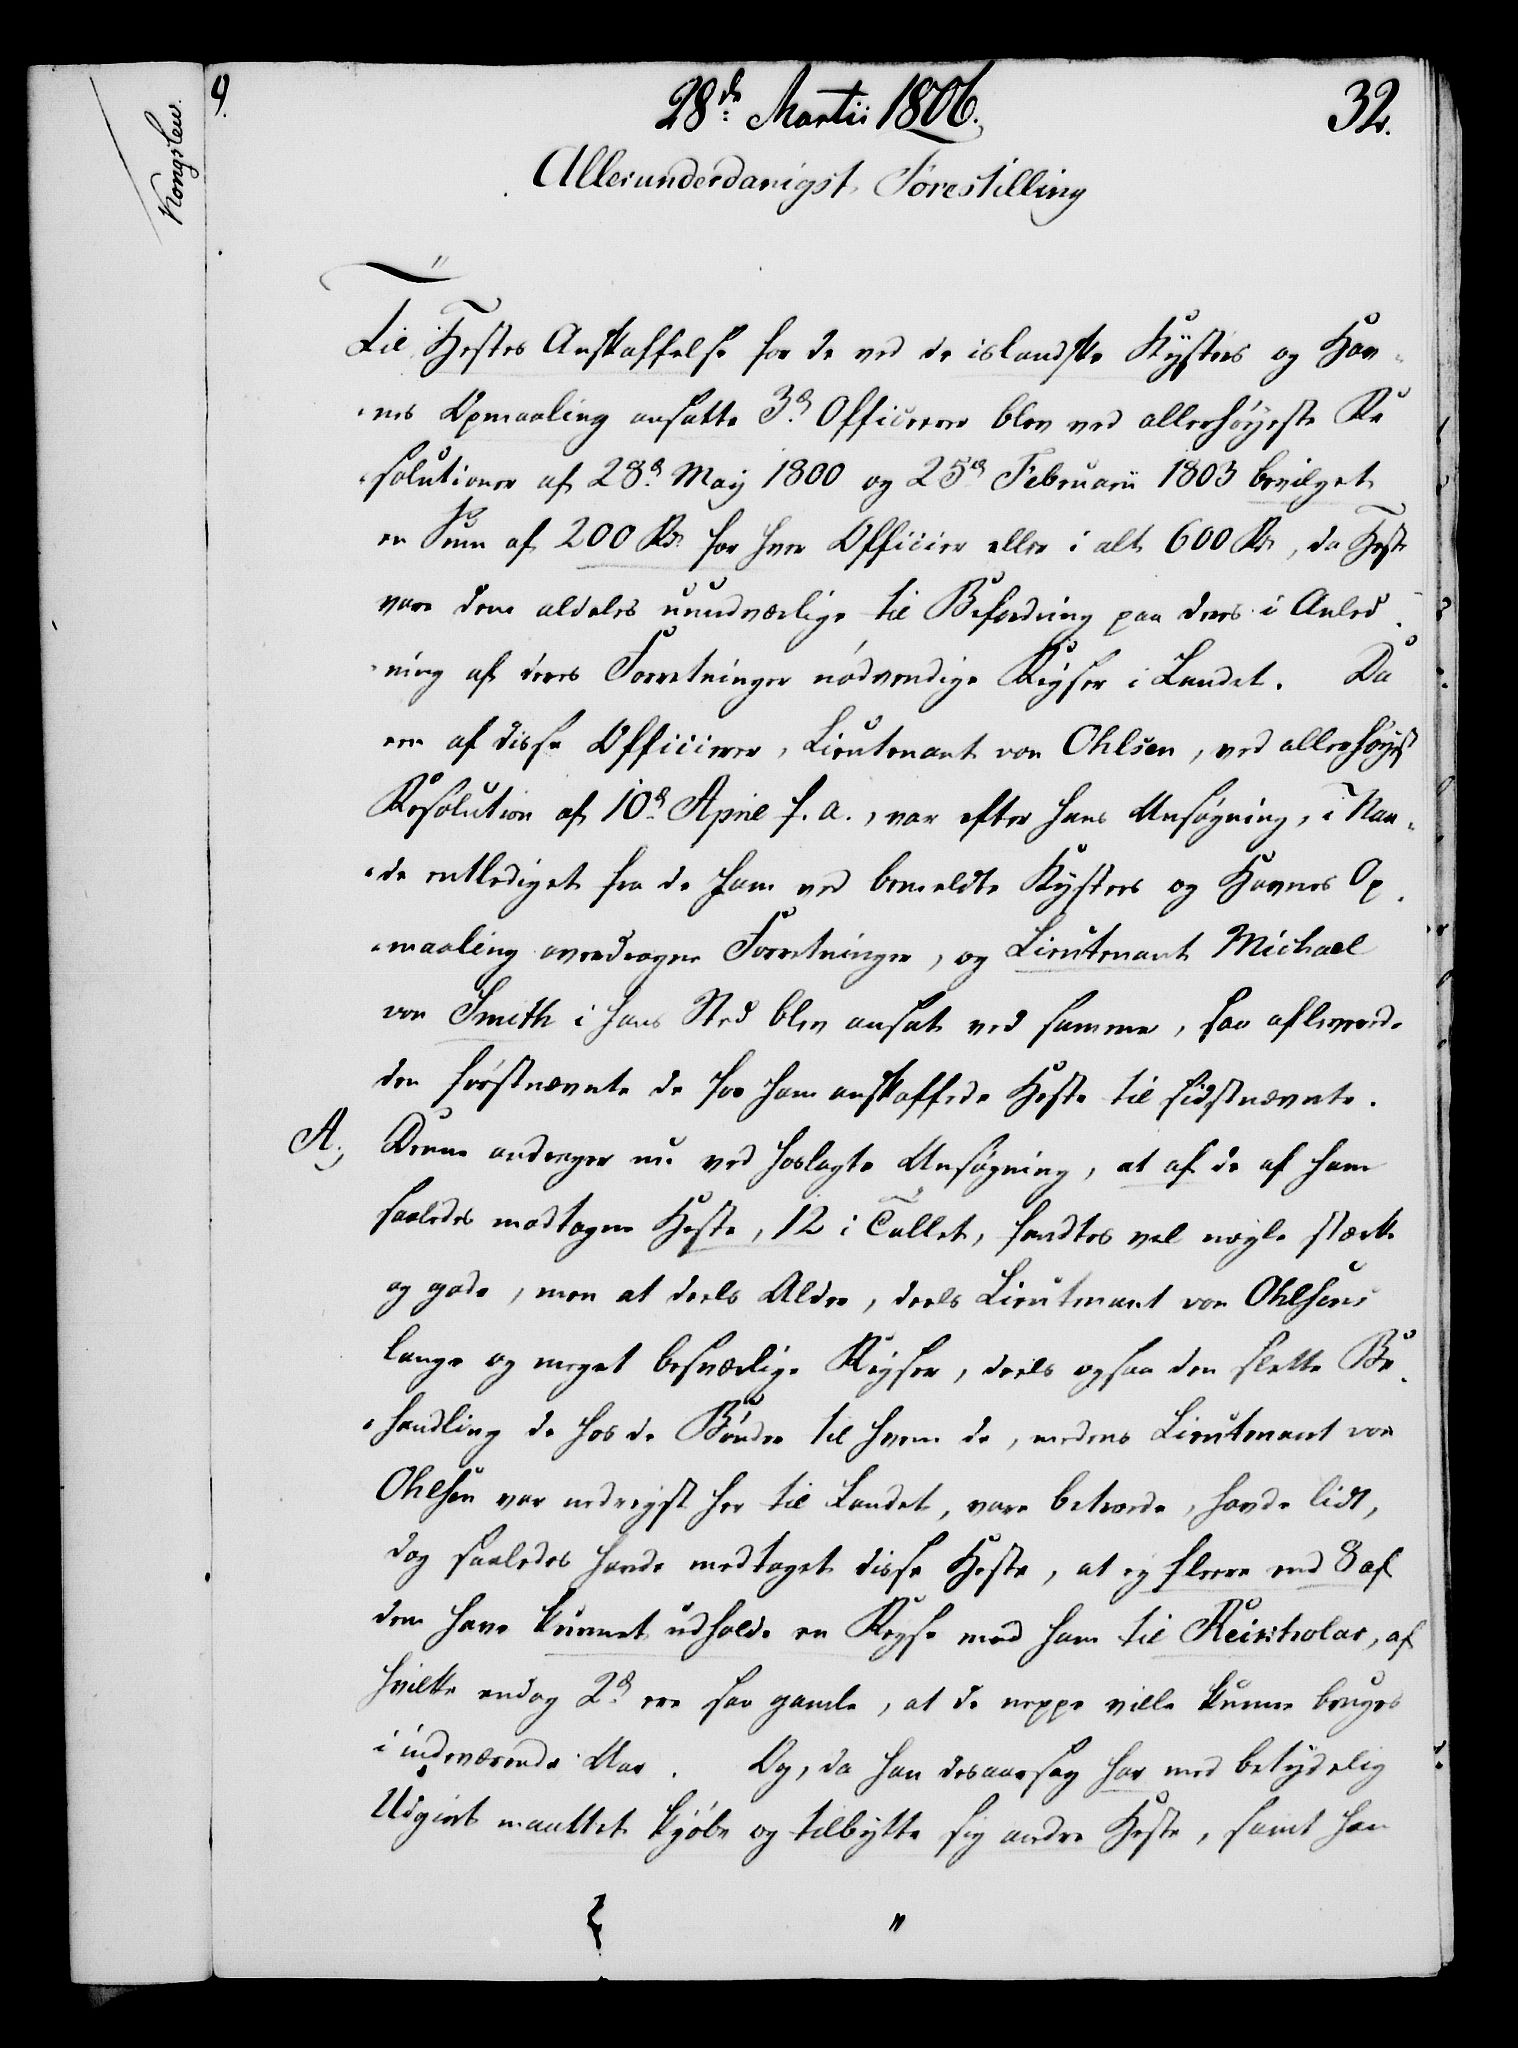 Kongslew.
9.
28de Martii 1806.
32.
Allerunderdanigst Forestilling
Til Hestes Anskaffelse for de ved de islandske Kysters og Hav-
-nes Opmaaling ansatte 3de Officierer blev ved allerhøyeste Re
-solutioner af 28de May 1800 og 25de Februarii 1803 bevilget
en Sum af 200 Rd for hver Officier eller i alt 600 Rd, da Heste
vare dem aldeles uundværlige til Befordring paa deres i Anled-
-ning af deres Forretninger nødvendige Reyser i Landet. Da
een af disse Officierer, Lieutenant von Ohlsen, ved allerhøyest
Resolution af 10de April f. a., var efter hans Ansøgning, i Naa-
-de entlediget fra de ham ved bemeldte Kysters og Havnes Op-
-maaling overdragne Forretninger, og Lieutenant Michael
von Smith i hans Sted blev ansat ved samme, saa afleverede
den førstnævnte de for ham anskaffede Heste til sidstnævnte.
A.) Denne andrager nu ved hoslagte Ansøgning, at af de af ham
saaledes modtagne Heste, 12 i Tallet, fandtes vel nogle stærke
og gode, men at deels Alder, deels Lieutenant von Ohlsens
lange og meget besværlige Reyser, deels ogsaa den slette Be-
-handling de hos de Bønder til hvem de, medens Lieutenant von
Ohlsen var nedreyst her til Landet, vare betroede, havde lidt,
dog saaledes havde medtaget disse Heste, at ey fleere end 8 af
dem have kunnet udholde en Reyse med ham til Reikholar, af
hvilke endog 2de ere saa gamle, at de neppe ville kunne bruges
i indeværende Aar. Og, da han desaarsag har med betydelig
Udgivt maattet kjøbe og tilbytte sig andre Heste, samt han